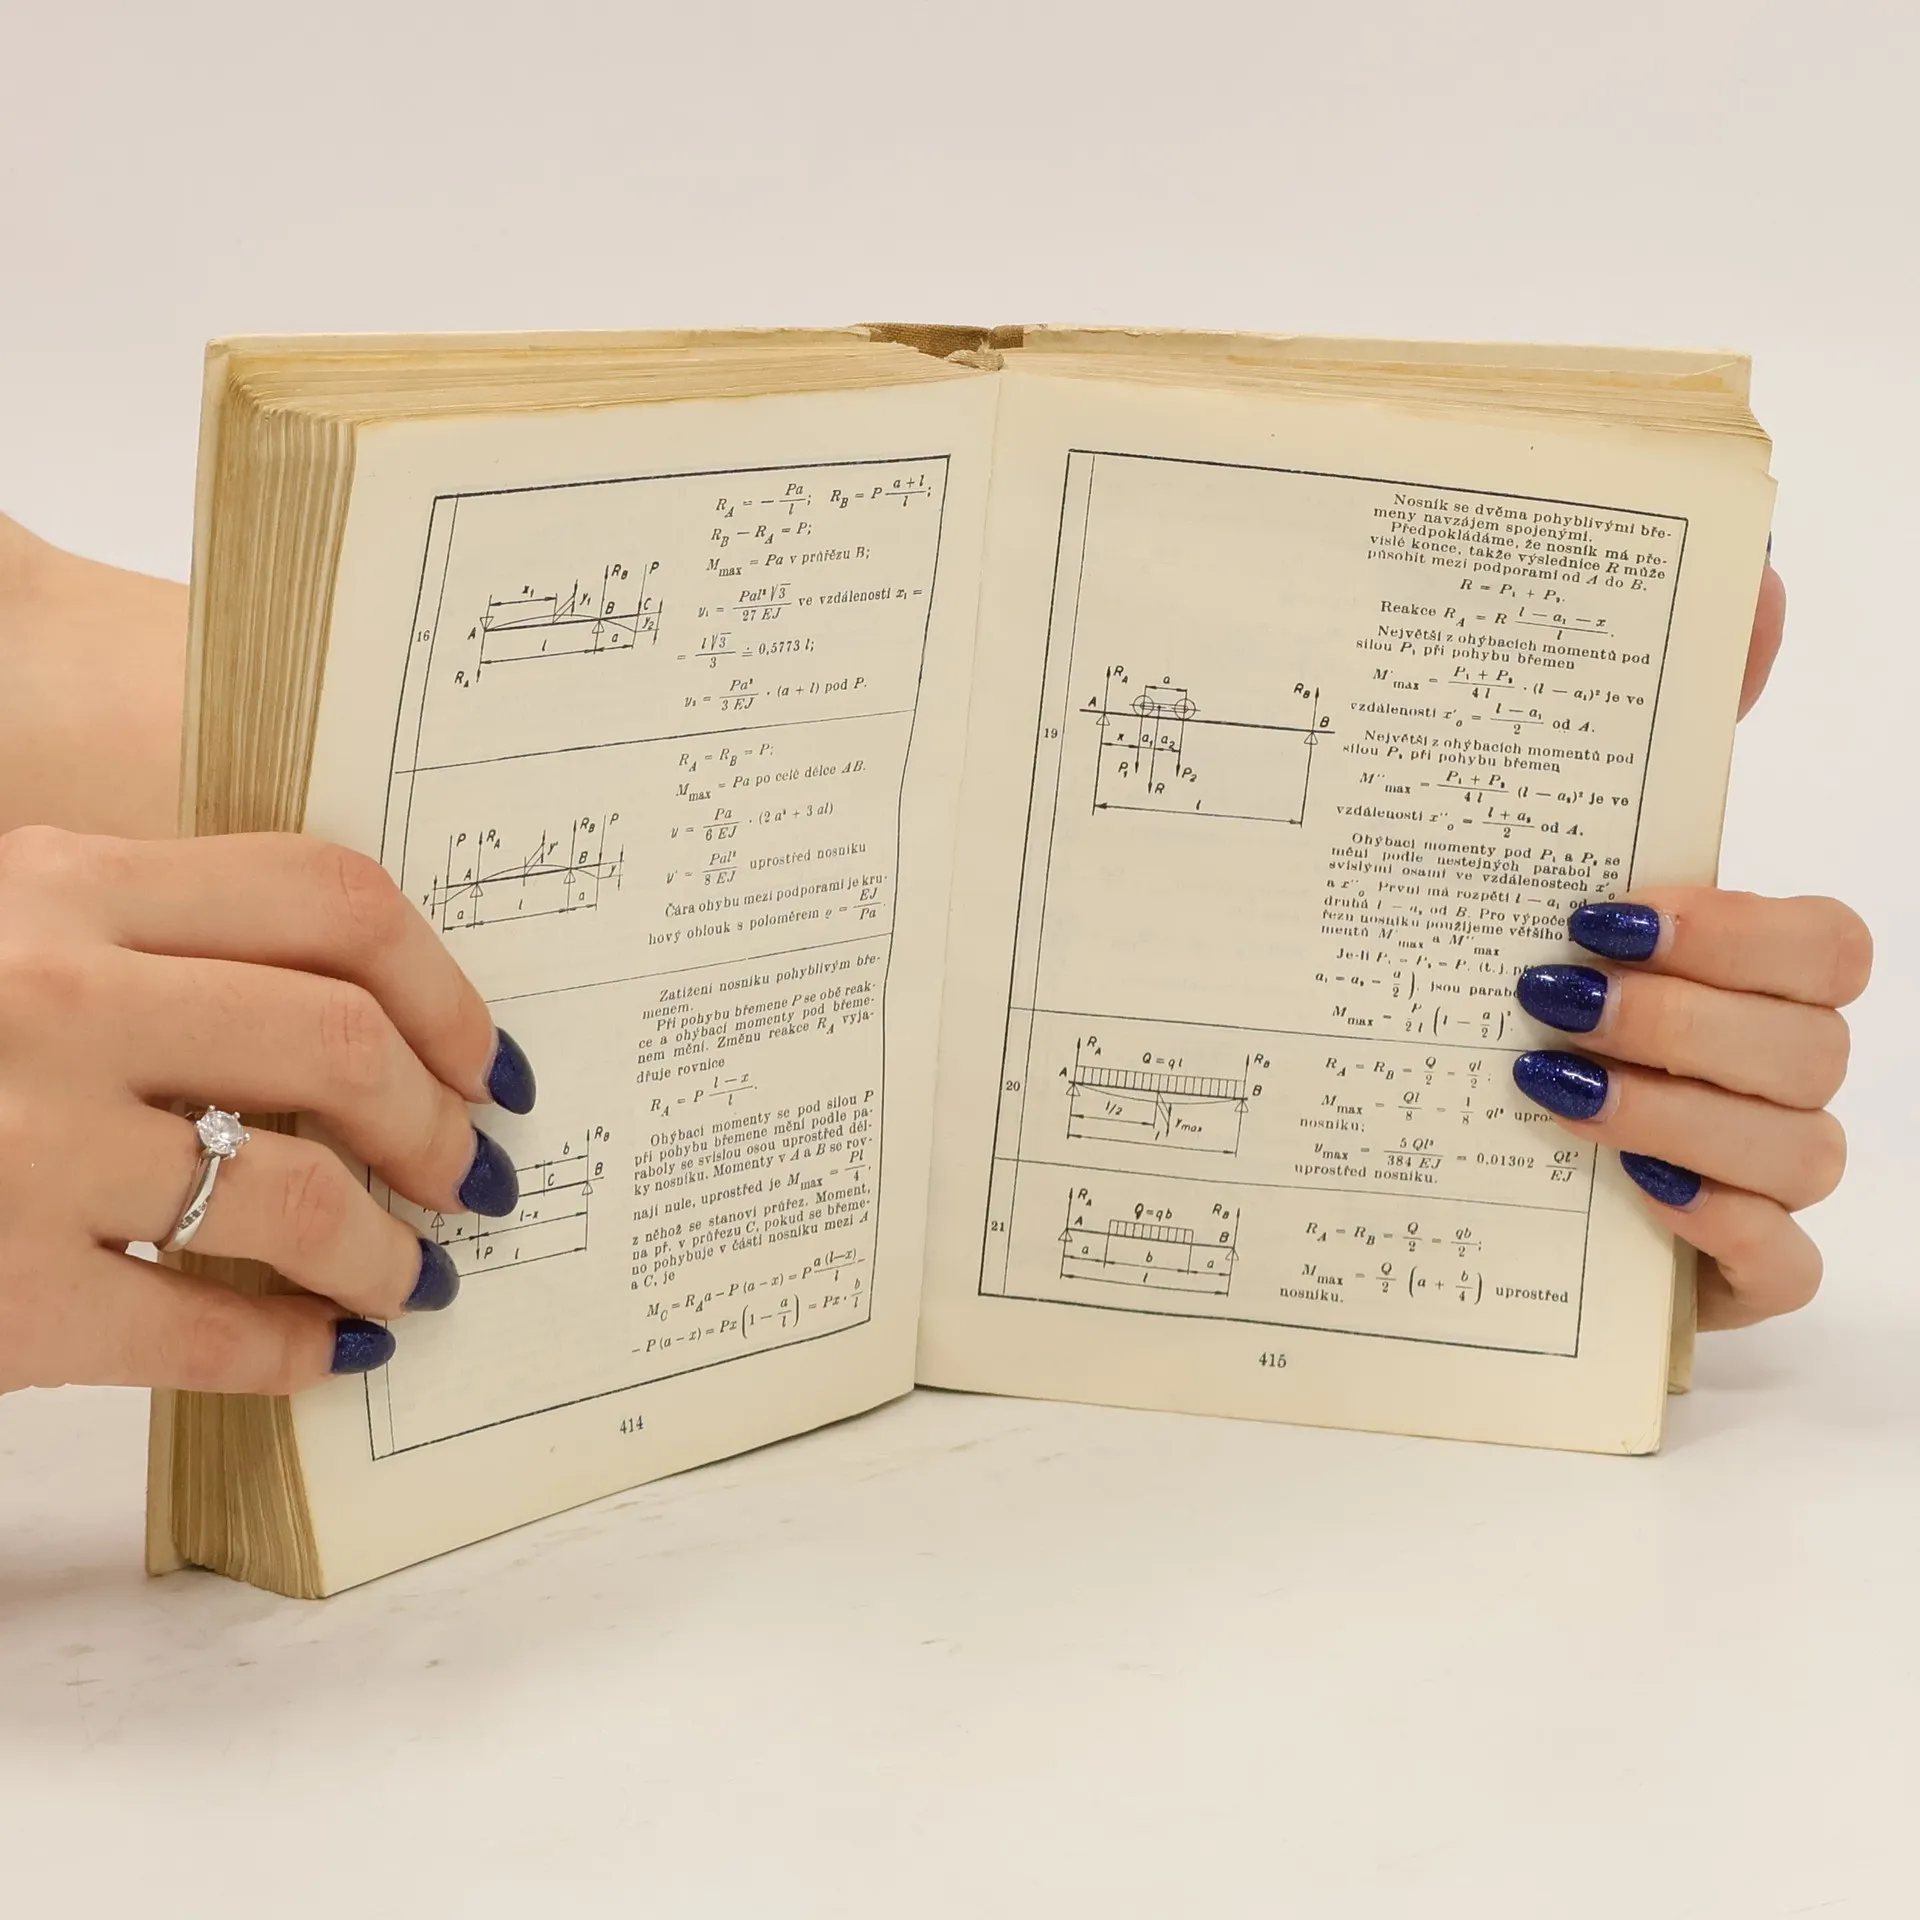 16
R_A = − Pa/l; R_B = P (a + l)/l;
R_B − R_A = P;
M_max = Pa v průřězu B;
y₁ = Pal² √3 / 27 EJ ve vzdálenosti x₁ =
= l √3 / 3 ≐ 0,5773 l;
y₂ = Pa² / 3 EJ · (a + l) pod P.
x₁ y₁ R_B P
A B C y₂
l a
R_A
R_A = R_B = P;
M_max = Pa po celé délce AB.
y = Pa / 6 EJ · (2 a² + 3 al)
y' = Pal² / 8 EJ uprostřed nosníku
Čára ohybu mezi podporami je kru-
hový oblouk s poloměrem ϱ = EJ / Pa.
P R_A y' R_B P
y A B y
a l a
Zatížení nosníku pohyblivým bře-
menem.
Při pohybu břemene P se obě reak-
ce a ohýbací momenty pod břeme-
nem mění. Změnu reakce R_A vyja-
dřuje rovnice
R_A = P (l − x)/l.
Ohýbací momenty se pod silou P
při pohybu břemene mění podle pa-
raboly se svislou osou uprostřed dél-
ky nosníku. Momenty v A a B se rov-
nají nule, uprostřed je M_max = Pl/4,
z něhož se stanoví průřez. Moment,
na př. v průřezu C, pokud se břeme-
no pohybuje v části nosníku mezi A
a C, je
M_C = R_A a − P (a − x) = P a (l−x)/l −
− P (a − x) = Px (1 − a/l) = Px · b/l
b R_B
C B
x l−x
P l
414
Nosník se dvěma pohyblivými bře-
meny navzájem spojenými.
Předpokládáme, že nosník má pře-
vislé konce, takže výslednice R může
působit mezi podporami od A do B.
R = P₁ + P₂.
Reakce R_A = R (l − a₁ − x)/l.
Největší z ohýbacích momentů pod
silou P₁ při pohybu břemen
M'_max = (P₁ + P₂)/4 l · (l − a₁)² je ve
vzdálenosti x'₀ = (l − a₁)/2 od A.
Největší z ohýbacích momentů pod
silou P₂ při pohybu břemen
M''_max = (P₁ + P₂)/4 l (l − a₂)² je ve
vzdálenosti x''₀ = (l + a₂)/2 od A.
Ohýbací momenty pod P₁ a P₂ se
mění podle nestejných parabol se
svislými osami ve vzdálenostech x'₀
a x''₀ První má rozpětí l − a₁ od
druhá l − a₂ od B. Pro výpoče
řezu nosníku použijeme většího
mentů M'_max a M''_max
Je-li P₁ = P₂ = P, (t. j. př
a₁ = a₂ = a/2), jsou parab
M_max = P/2 l (l − a/2)².
19
R_A a R_B
A B
x a₁ a₂
P₁ R P₂
l
20
R_A Q = ql R_B
A B
l/2 y_max
l
R_A = R_B = Q/2 = ql/2;
M_max = Ql/8 = 1/8 ql² upros
nosníku;
y_max = 5 Ql³ / 384 EJ = 0,01302 Ql³ / EJ
uprostřed nosníku.
21
R_A Q=qb R_B
A B
a b a
l
R_A = R_B = Q/2 = qb/2;
M_max = Q/2 (a + b/4) uprostřed
nosníku.
415